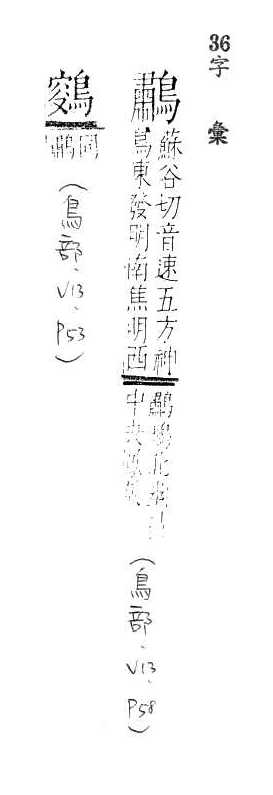 36字彙
鷫
蘇谷切音速五方神
鳥東發明南焦明西
鷫鷞北
中央
(鳥部、V13、P58)
同鷫
(鳥部、V13、P53)